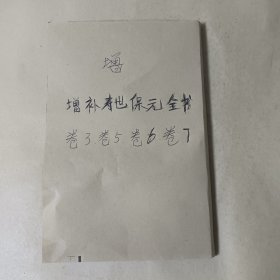 增
增补寿世保元全书
卷3卷5卷6卷7